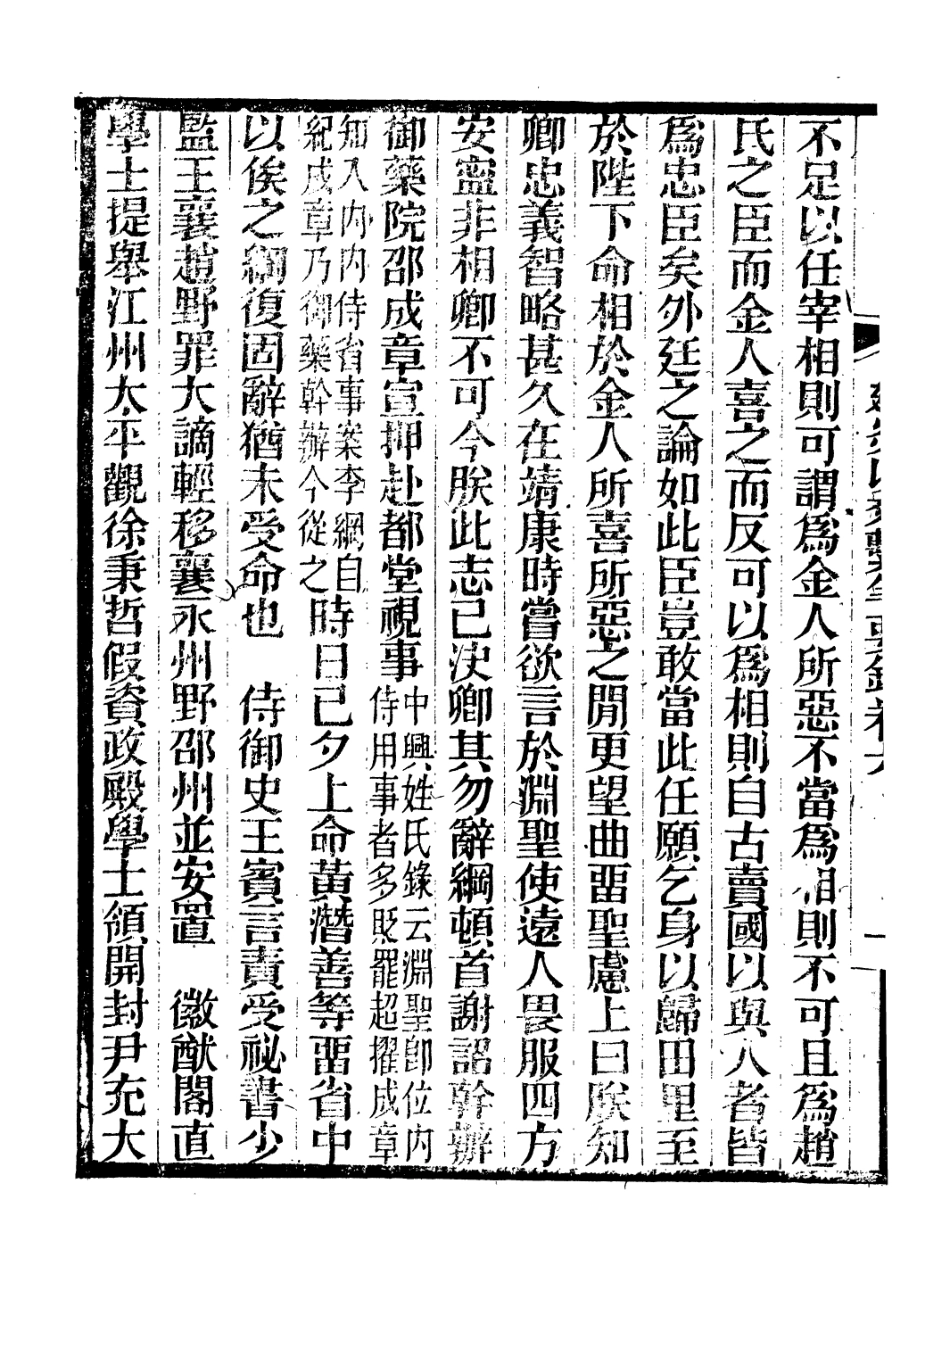 不足以任宰相則可謂爲金人所惡不當爲相則不可且爲趙
氏之臣而金人喜之而反可以爲相則自古賣國以與人者皆
爲忠臣矣外廷之論如此臣豈敢當此任願乞身以歸田里至
於陛下命相於金人所喜所惡之閒更望曲畱聖慮上曰朕知
卿忠義智略甚久在靖康時嘗欲言於淵聖使遠人畏服四方
安寧非相卿不可今朕此志已決卿其勿辭綱頓首謝詔幹辦
御藥院邵成章宣押赴都堂視事中興姓氏錄云淵聖卽位內
侍用事者多貶罷超擢成章
知入內內侍省事案李綱自
紀成章乃御藥幹辦今從之時日已夕上命黃潛善等畱省中
以俟之綱復固辭猶未受命也　侍御史王賓言責受祕書少
監王襄趙野罪大謫輕移襄永州野邵州並安置　徽猷閣直
學士提舉江州太平觀徐秉哲假資政殿學士領開封尹充大